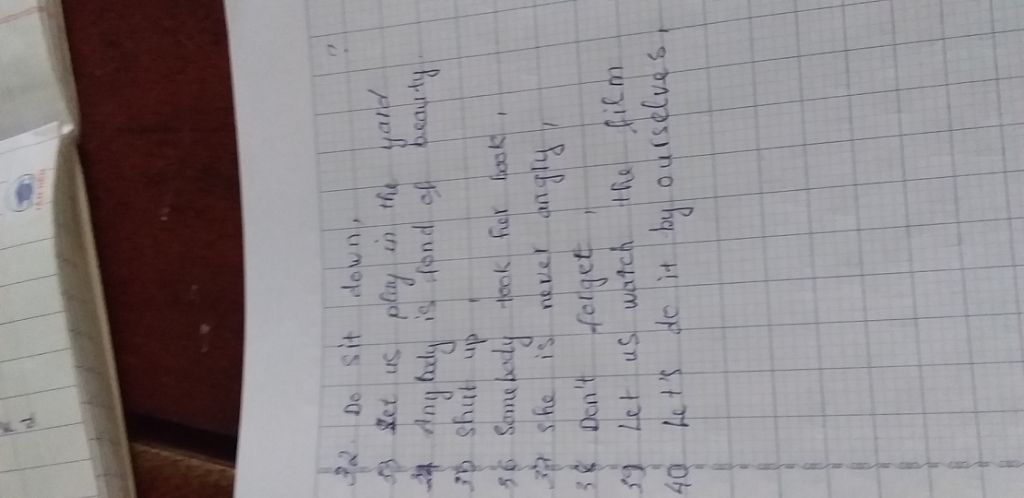 32. Do sit down,
33 Let us play in the yard
34 Anybody is fond of beauty.
35 Shut up,
36 Somebody took her book,
37 She is never angry,
38 Don't forget,
39 Let us watch the film
40 Let's do it by ourselves,